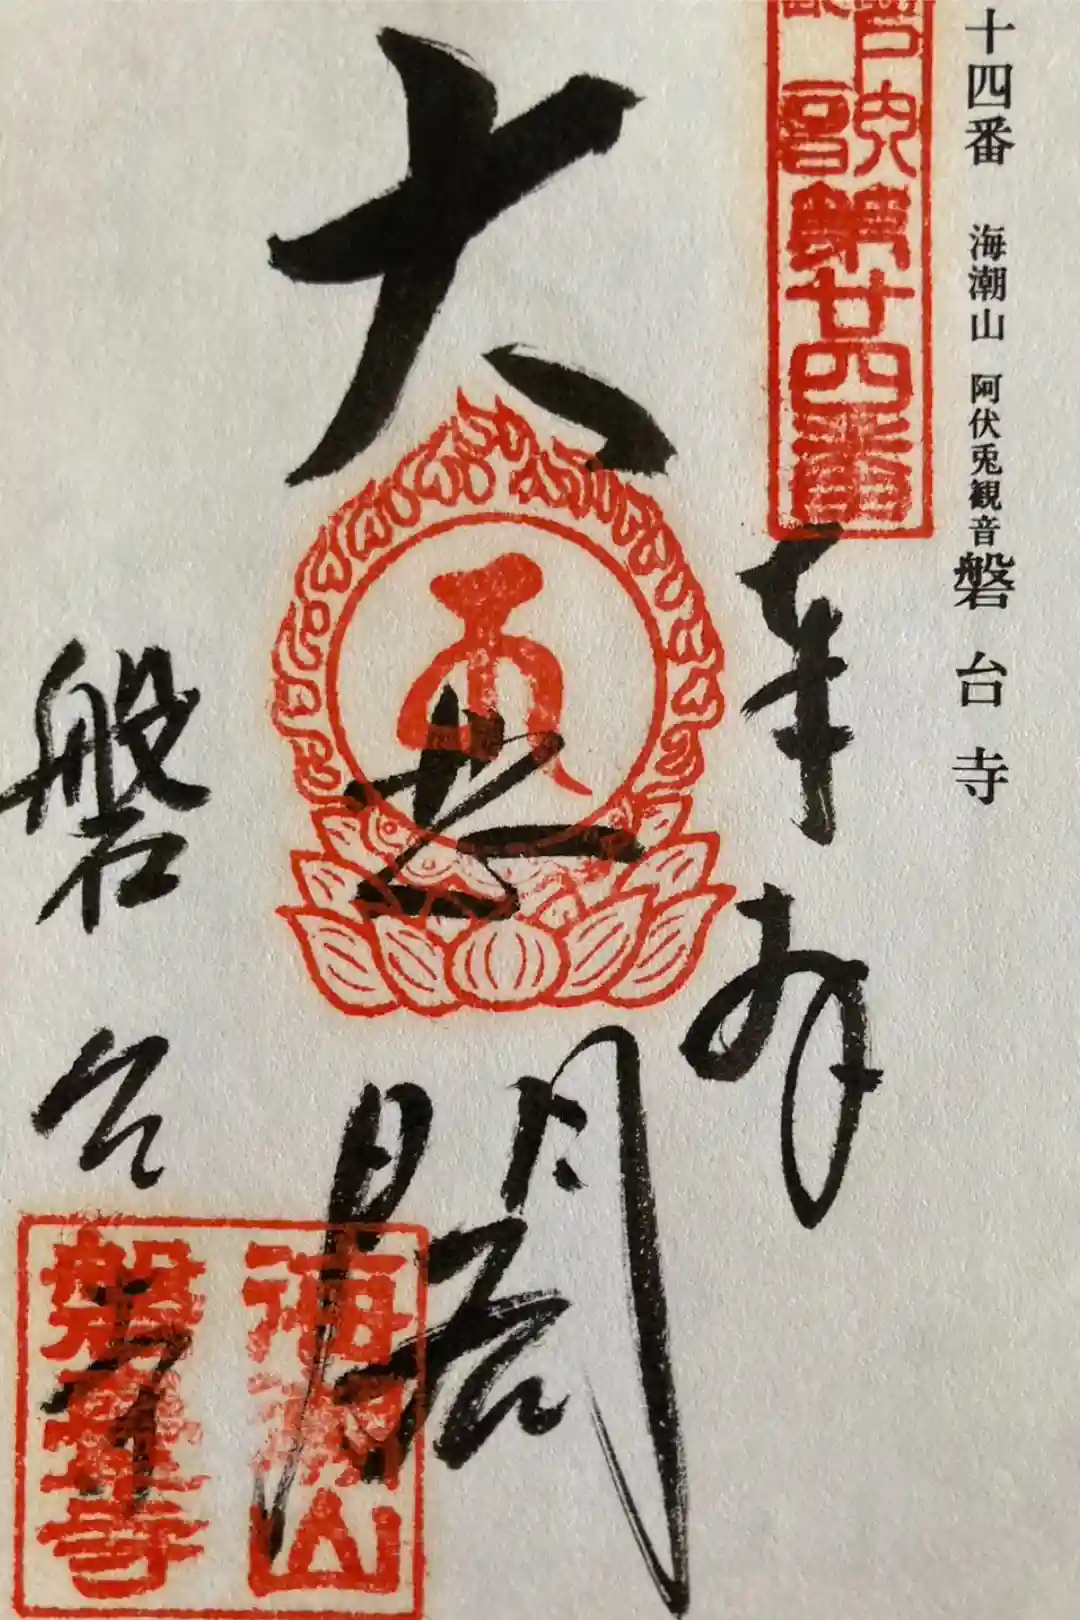 十四番　海潮山　阿伏兎観音　磐台寺
第廿四番
奉拝
大悲閣
磐台寺
海潮山
磐臺寺